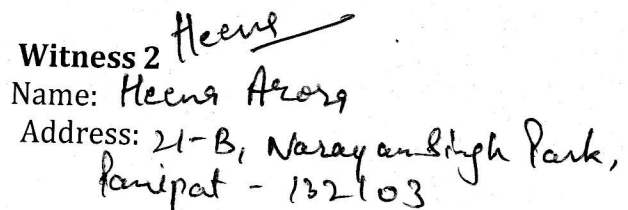 Witness 2 Heena
Name: Heena Arora
Address: 21-B, Narayan Singh Park,
Panipat - 132103